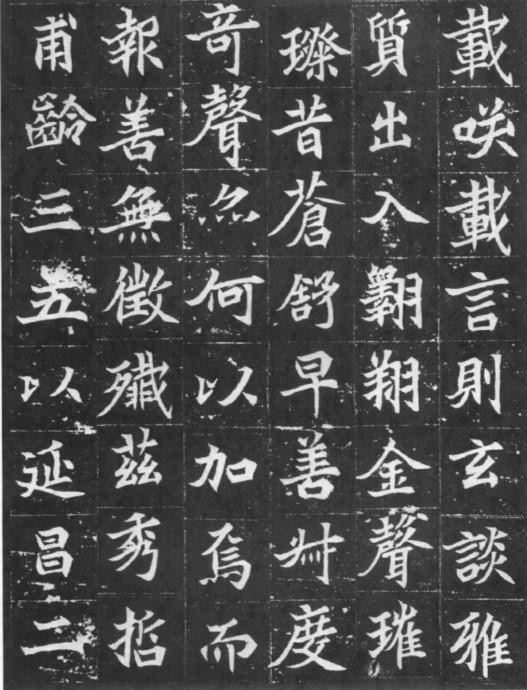 載咲載言則玄談雅
質出入翱翔金聲璀
璨昔蒼舒早善叔度
竒聲亦何以加焉而
報善無徵殲茲秀哲
甫齡三五以延昌二